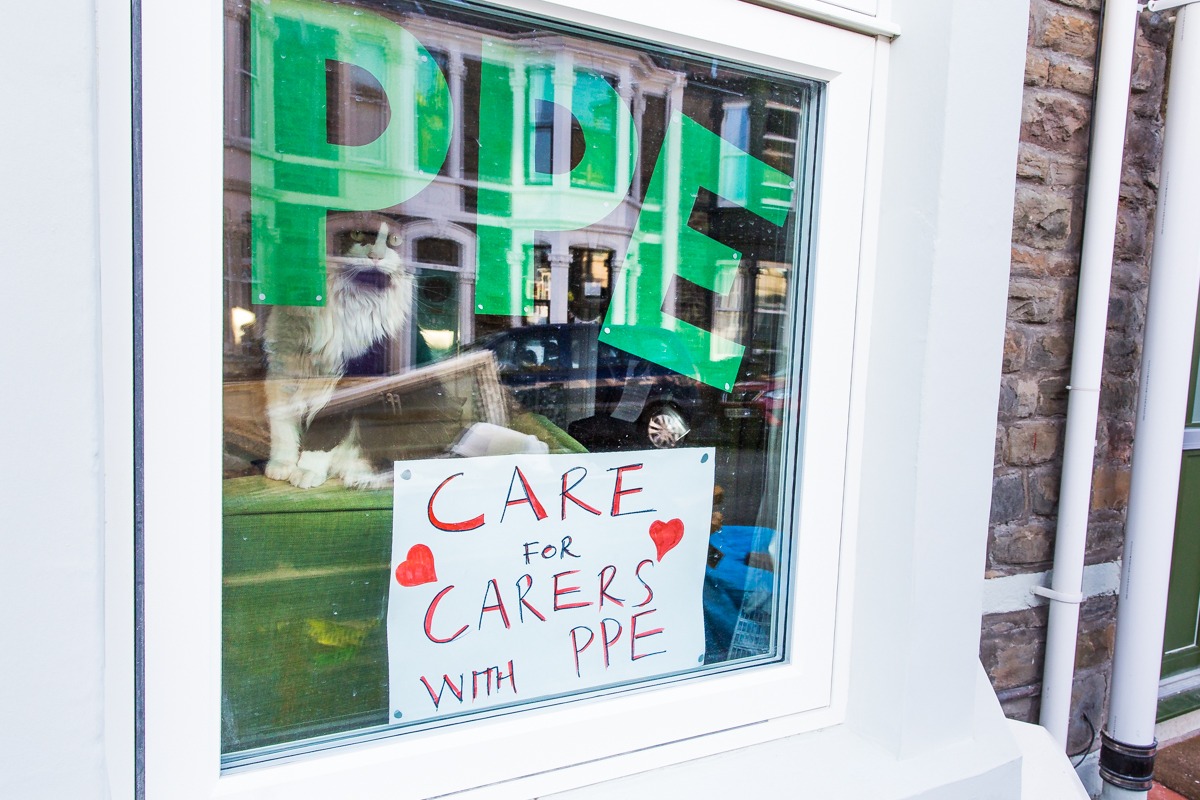 PPE
CARE
FOR
CARERS
WITH PPE